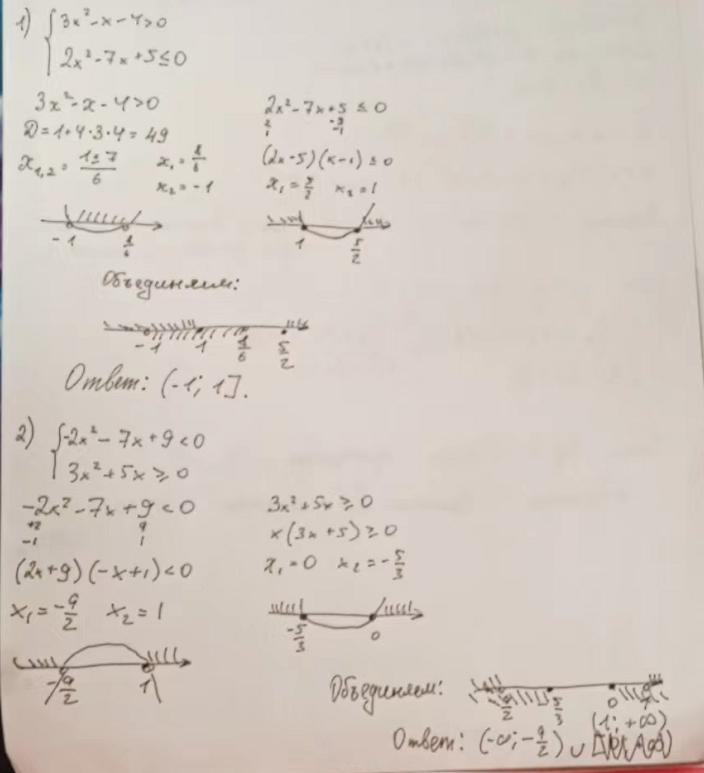 1) { 3x² - x - 4 > 0
2x² - 7x + 5 ≤ 0
3x² - x - 4 > 0
D = 1 + 4·3·4 = 49
x₁,₂ = (1 ± 7)/6 x₁ = 8/6
x₂ = -1
-1 8/6
2x² - 7x + 5 ≤ 0
2 -5
1 -1
(2x - 5)(x - 1) ≤ 0
x₁ = 5/2 x₂ = 1
1 5/2
Объединяем:
-1 1 8/6 5/2
Ответ: (-1; 1].
2) { -2x² - 7x + 9 < 0
3x² + 5x ≥ 0
-2x² - 7x + 9 < 0
+2 9
-1 1
(2x + 9)(-x + 1) < 0
x₁ = -9/2 x₂ = 1
-9/2 1
3x² + 5x ≥ 0
x(3x + 5) ≥ 0
x₁ = 0 x₂ = -5/3
-5/3 0
Объединяем:
9/2 5/3 0 1
(1; +∞)
Ответ: (-∞; -9/2) ∪